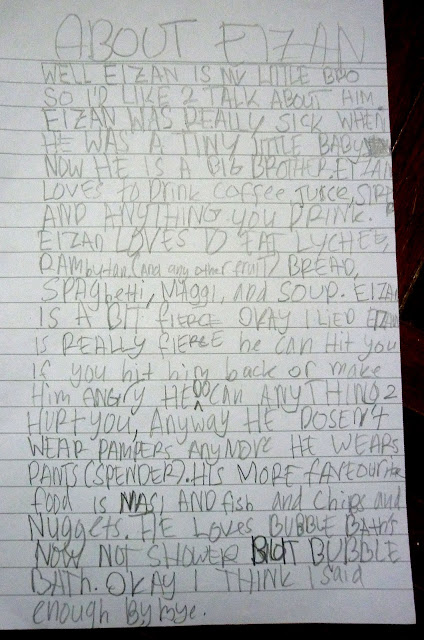 ABOUT EIZAN
WELL EIZAN IS MY LITTLE BRO
SO I'D LIKE 2 TALK ABOUT HIM.
EIZAN WAS REALLY SICK WHEN
HE WAS A TINY LITTLE BABY
NOW HE IS A BIG BROTHER. EIZAN
LOVES to Drink coffee, Juice,
AND ANYTHING YOU DRINK.
EIZAN LOVES TO EAT LYCHEE,
RAMbutan, (and any other fruit) BREAD,
SPAghetti, MAGGI, and SOUP. EIZAN
IS A BIT FIERCE OKAY I LIED EIZAN
is REALLY FIERCE he can Hit you
if you hit him back or make
Him ANGRY HE CAN DO ANYTHING 2
HURT YOU, Anyway HE DOSEN'T
WEAR PAMPERS ANYMORE HE WEARS
PANTS (SPENDER). HIS MORE FAVEOURITE
food is NASI AND fish and chips and
Nuggets. HE LOVES BUBBLE BATHS
NOW NOT SHOWER BUT BUBBLE
BATH. OKAY I THINK I said
enough By,bye.